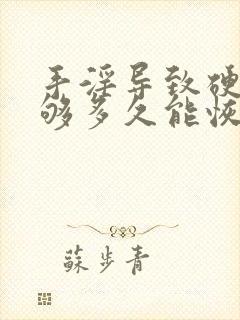 手淫导致硬
够多久能恢
蘇步青